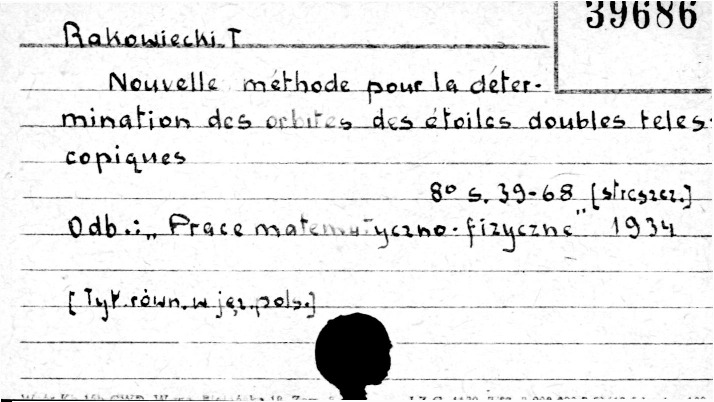 39686
Rakowiecki T
Nouvelle méthode pour la déter-
mination des orbites des étoiles doubles teles-
copiques
8° s. 39-68 [streszcz.]
Odb.: „Prace matematyczno-fizyczne" 1934
[Tyt. równ. w jęz. pols.]